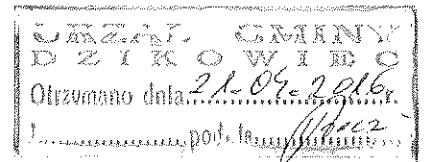 URZĄD GMINY
DZIKOWIEC
Otrzymano dnia 21-04-2016r.
L........... podpis